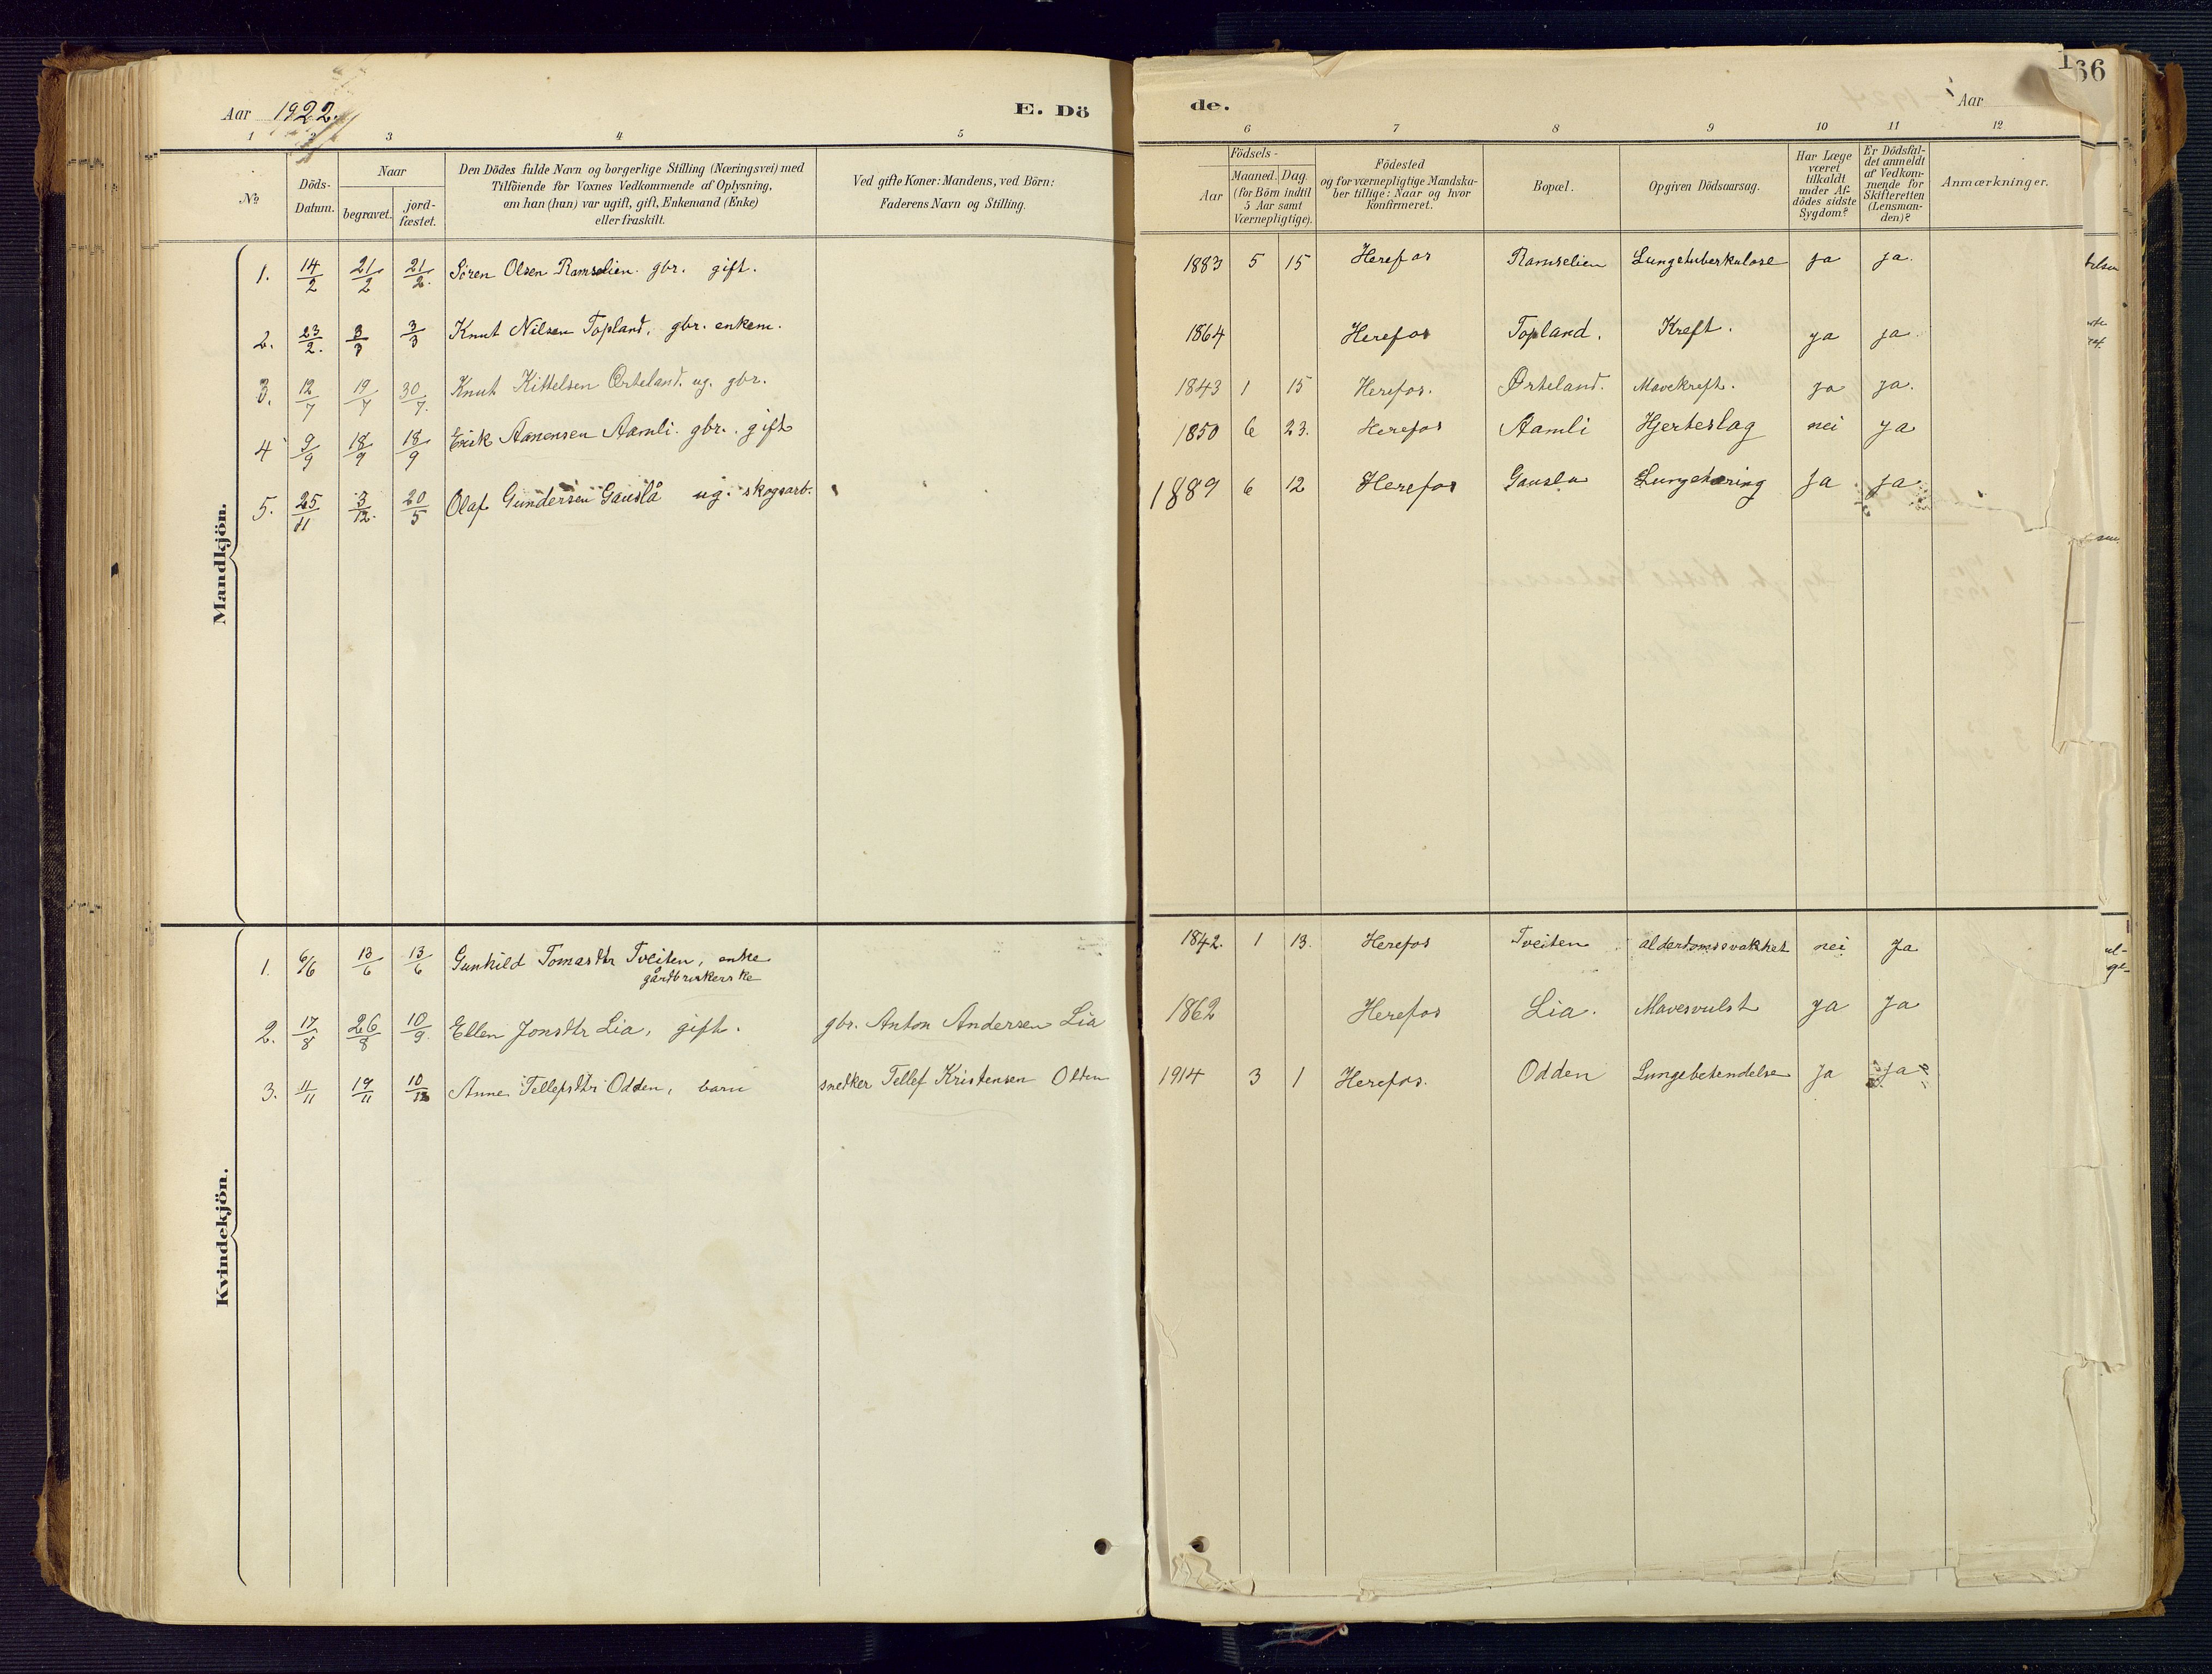 Aar 1922.
E. Dö
de.
Aar
166
1 2 3 4 5 6 7 8 9 10 11 12
No
Döds-
Datum.
Naar
begravet.
jord-
fæstet.
Den Dödes fulde Navn og borgerlige Stilling (Næringsvei) med
Tilföiende for Voxnes Vedkommende af Oplysning,
om han (hun) var ugift, gift, Enkemand (Enke)
eller fraskilt.
Ved gifte Koner: Mandens, ved Börn:
Faderens Navn og Stilling.
Födsels-
Aar
Maaned. Dag.
(for Börn indtil
5 Aar samt
Værnepligtige).
Födested
og for værnepligtige Mandska-
ber tillige: Naar og hvor
konfirmeret.
Bopæl.
Opgiven Dödsaarsag.
Har Læge
været
tilkaldt
under Af-
dödes sidste
Sygdom?
Er Dödsfal-
det anmeldt
af Vedkom-
mende for
Skifteretten
(Lensman-
den)?
Anmærkninger.
Mandkjön.
1. 14/2 21/2 21/2. Sören Olsen Ramselien. gbr. gift. 1883 5 15 Herefos Ramselien Lungetuberkulose ja ja.
2. 23/2. 3/3 3/3 Knut Nilsen Topland, gbr. enkem. 1864 Herefos Topland. Kreft. ja ja
3. 12/7 19/7 30/7. Knut Kittelsen Örteland. ug. gbr. 1843 1 15 Herefos. Ørteland. Mavekreft. ja ja.
4 9/9 18/9 18/9 Erik Aanensen Aamli. gbr. gift 1850 6 23. Herefos Aamli Hjerteslag nei ja
5. 25/11 3/12. 20/5 Olaf Gundersen Gauslå ug. skogsarb. 1889 6 12 Herefos Gausla Lungetæring Ja ja
Kvindekjön.
1. 6/6 13/6 13/6 Gunhild Tomasdtr Tveiten, enke 1842. 1 13. Herefos Tveiten alderdomssvakhet nei Ja
gårdbrukerske
2. 17/8 26/8 10/9. Ellen Jonsdtr Lia, gift. gbr. Anton Andersen Lia 1862 Herefos Lia. Mavesvulst ja ja
3. 11/11 19/11 10/12 Anne Tellefsdtr Odden, barn snedker Tellef Kristensen Odden 1914 3 1 Herefos. Odden Lungebetendelse Ja ja